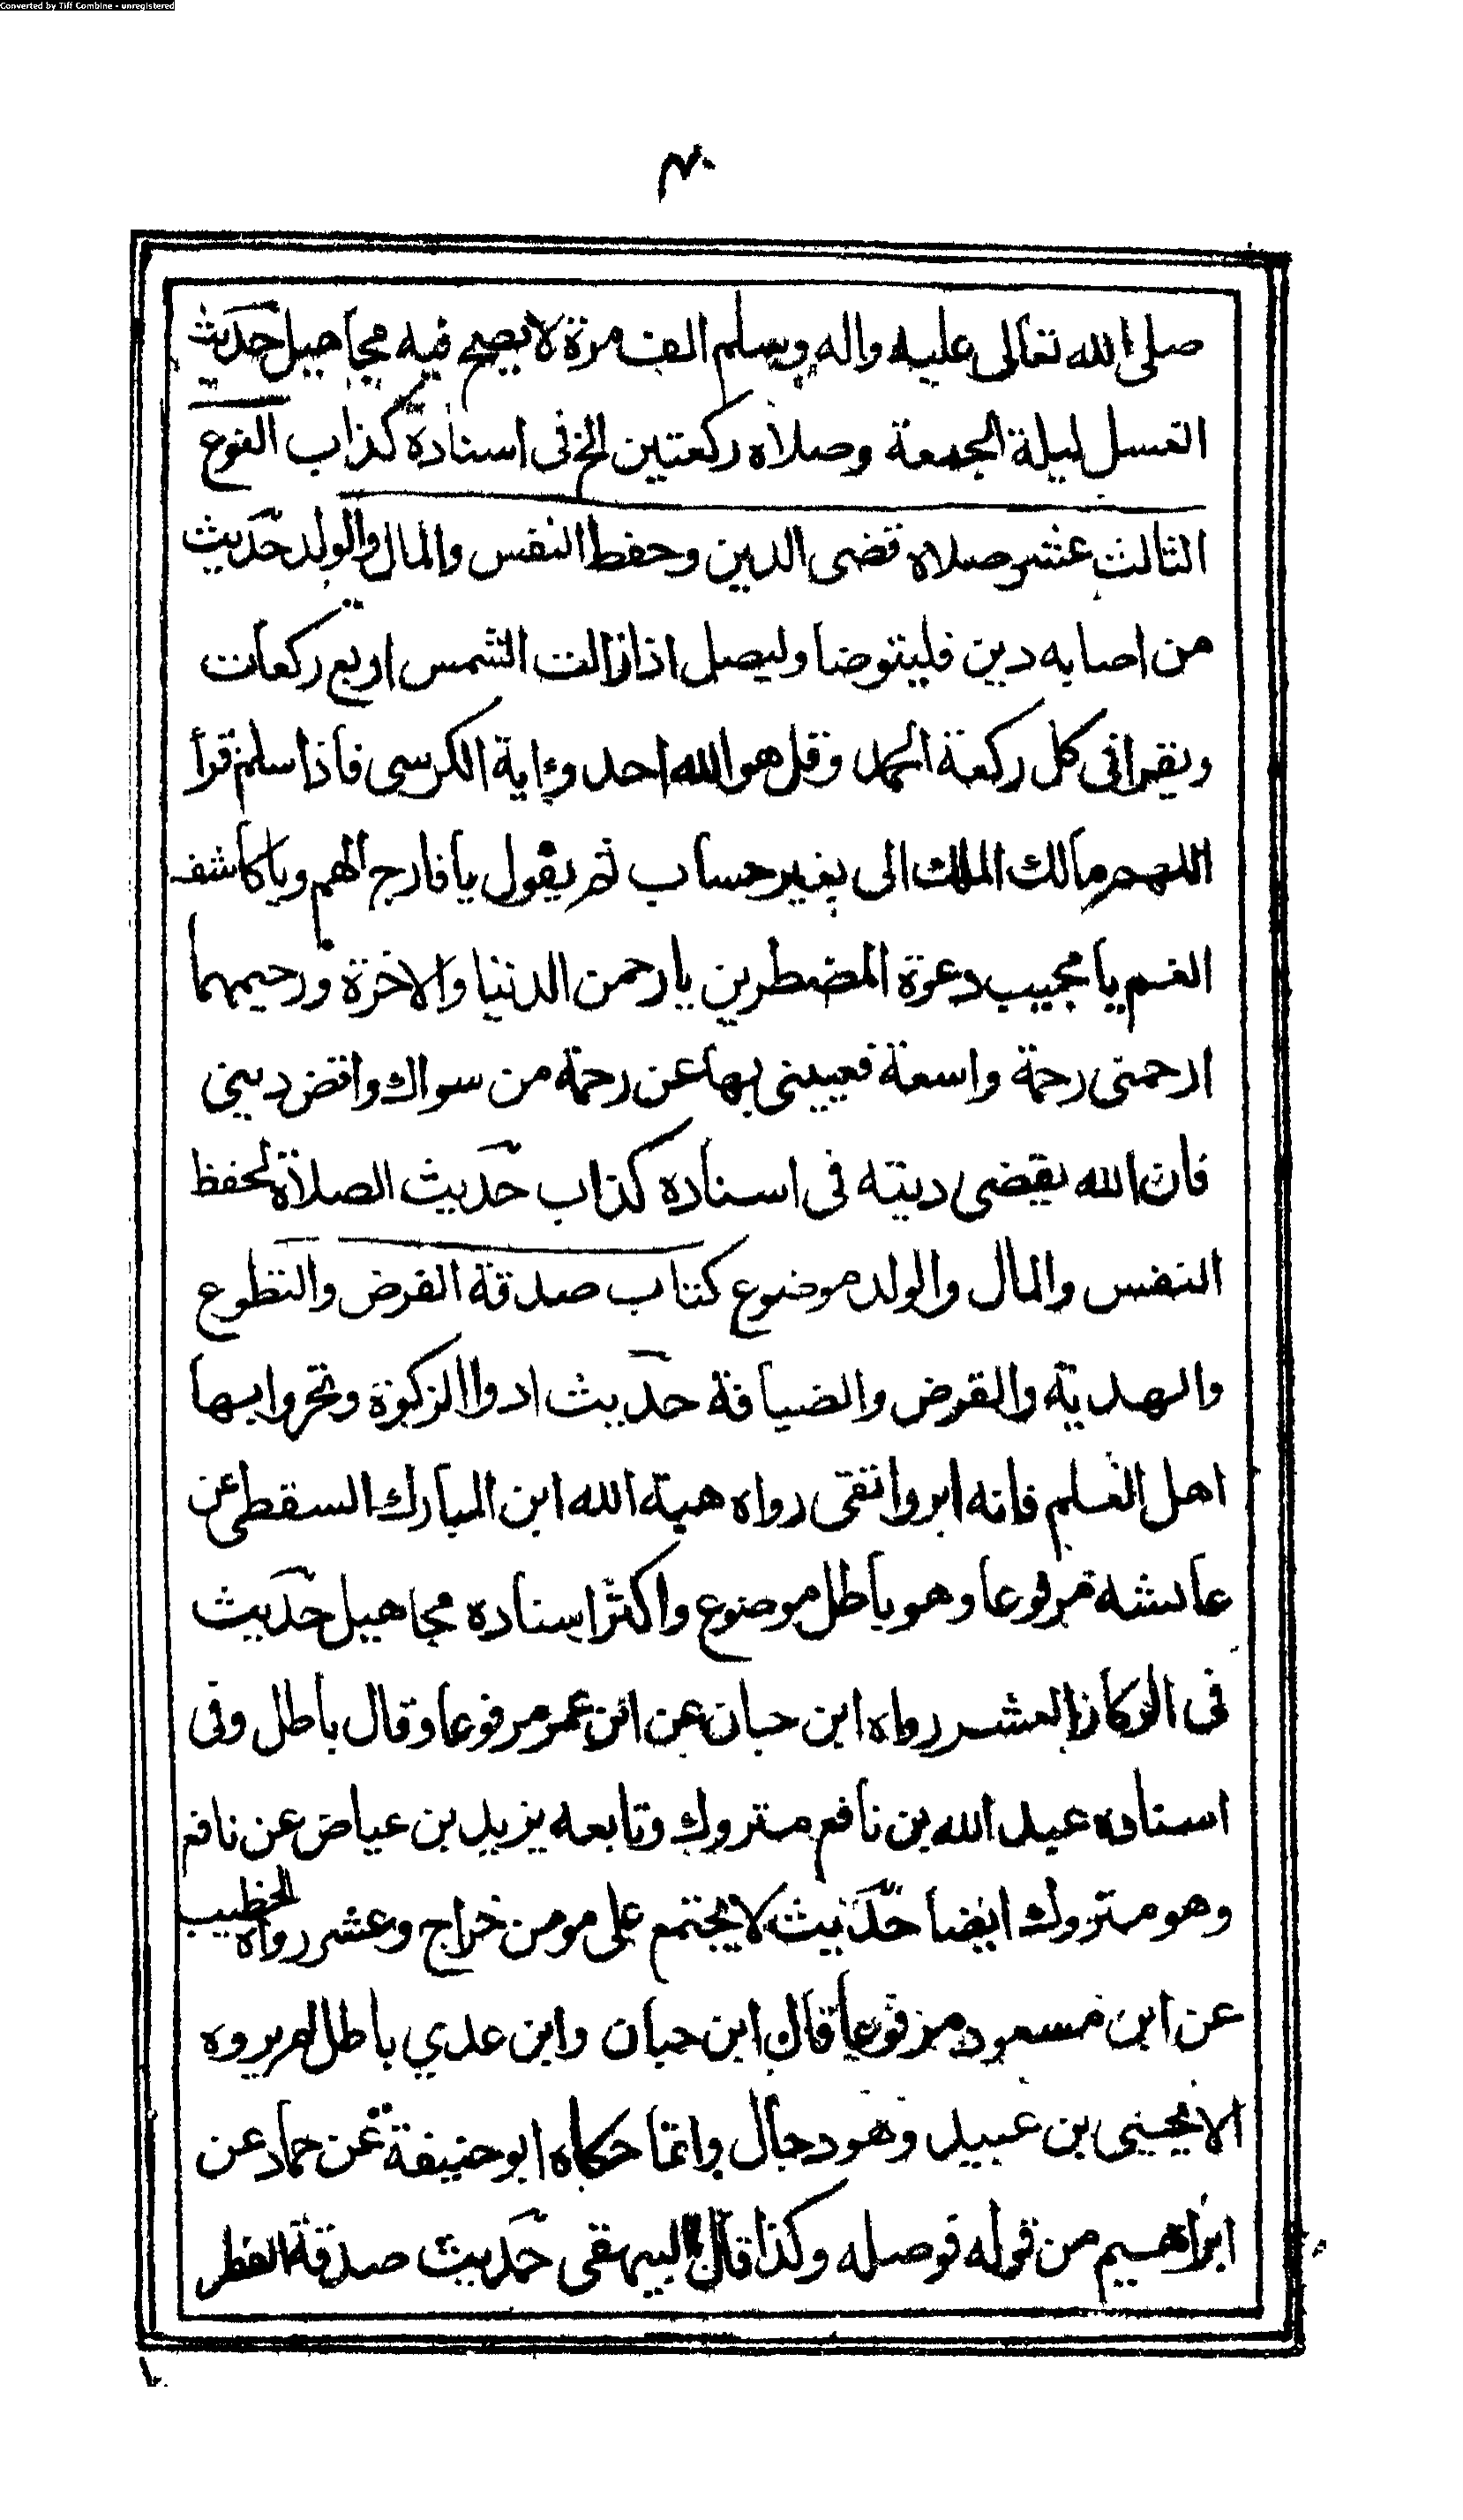 Converted by Tiff Combine - unregistered
٣٠
صلى الله تعالى عليه واله وسلم الف مرة لا يصح فيه مجاهيل حديث
الغسل ليلة الجمعة وصلاه ركعتين الخ فى اسناده كذاب النوع
الثالث عشر صلاه قضى الدين وحفظ النفس والمال والولد حديث
من اصابه دين فليتوضا وليصل اذا زالت الشمس اربع ركعات
ويقرا فى كل ركعة الحمد وقل هو الله احد وءاية الكرسى فاذا سلم قرأ
اللهم مالك الملك الى بغير حساب ثم يقول يا فارج الهم ويا كاشف
الغم يا مجيب دعوة المضطرين يا رحمن الدنيا والاخرة ورحيمهما
ارحمنى رحمة واسعة تغنينى بها عن رحمة من سواك واقض دينى
فان الله يقضى دينه فى اسناده كذاب حديث الصلاة لحفظ
النفس والمال والولد موضوع كتاب صدقة الفرض والتطوع
والهدية والقرض والضيافة حديث ادوا الزكوة وتحروا بها
اهل العلم فانه ابر واتقى رواه هبة الله ابن المبارك السقطى عن
عائشة مرفوعا وهو باطل موضوع واكثر اسناده مجاهيل حديث
فى الركاز العشر رواه ابن حبان عن ابن عمر مرفوعا وقال باطل وفى
اسناده عبد الله بن نافع متروك وتابعه يزيد بن عياض عن نافع
وهو متروك ايضا حديث لا يجتمع على مومن خراج وعشر رواه الخطيب
عن ابن مسعود مرفوعا قال ابن حبان وابن عدي باطل لم يروه
الا يحيى بن عبيد وهو دجال وانما حكاه ابو حنيفة عن حماد عن
ابراهيم من قوله فوصله وكذا قال البيهقى حديث صدقة الفطر